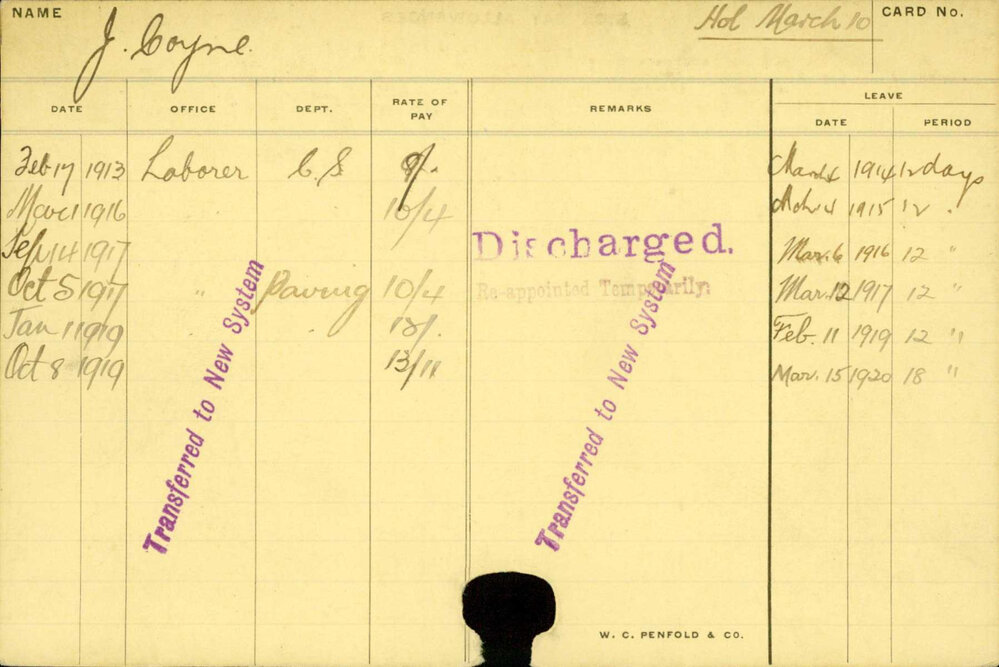 NAME J. Coyne. Hol March 10 CARD No.
DATE OFFICE DEPT. RATE OF PAY REMARKS LEAVE
DATE PERIOD
Feb 17 1913 Laborer C.S 9/. March 4 1914 12 days
Mar 1 1916 10/4 Mch 4 1915 12 "
Sep 14 1917 Discharged. Mar. 6 1916 12 "
Oct 5 1917 " Paving 10/4 Re-appointed Temporarily. Mar. 12 1917 12 "
Jan 1 1919 12/. Feb. 11 1919 12 "
Oct 8 1919 13/11 Mar. 15 1920 18 "
Transferred to New System
Transferred to New System
W. C. PENFOLD & CO.